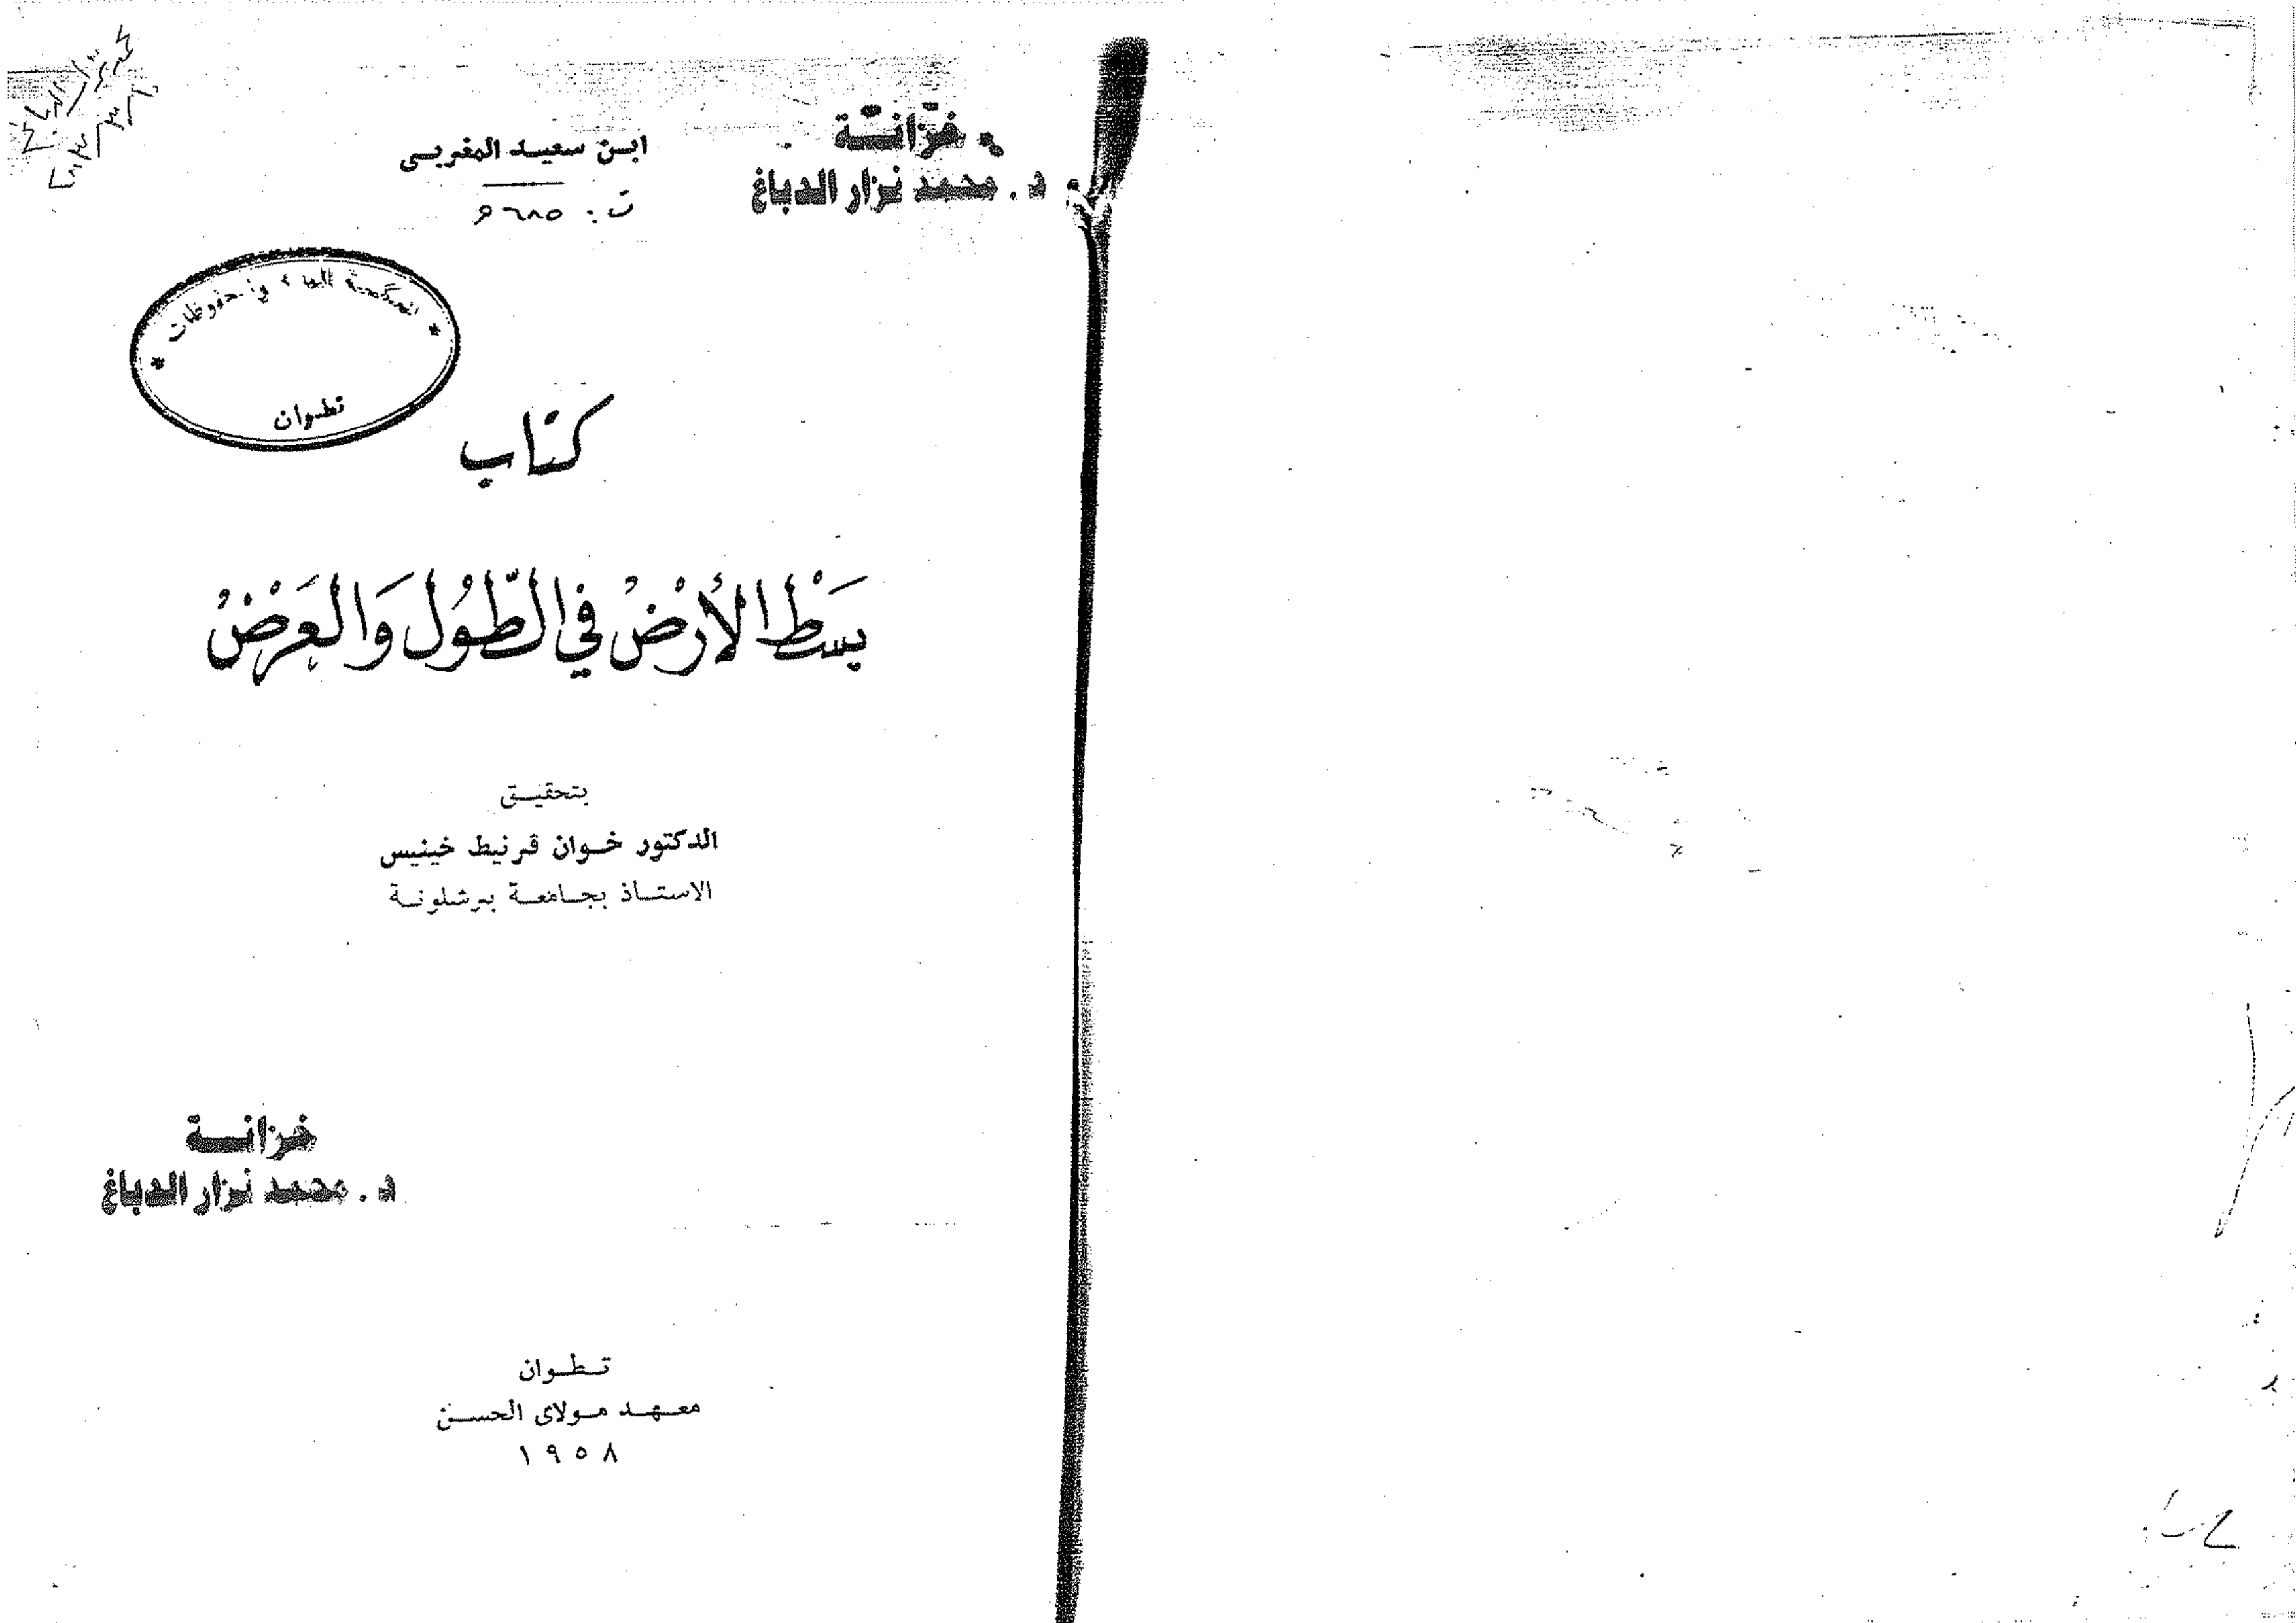 خزانة
د. محمد نزار الدباغ
ابن سعيد المغربي
ت: ٦٨٥ ه
والمحفوظات
تطوان
كتاب
بَسْط الأَرْضْ في الطّوُل وَالعَرْضْ
بتحقيق
الدكتور خوان قرنيط خينيس
الاستاذ بجامعة برشلونة
خزانة
د. محمد نزار الدباغ
تطوان
معهد مولاى الحسن
١٩٥٨